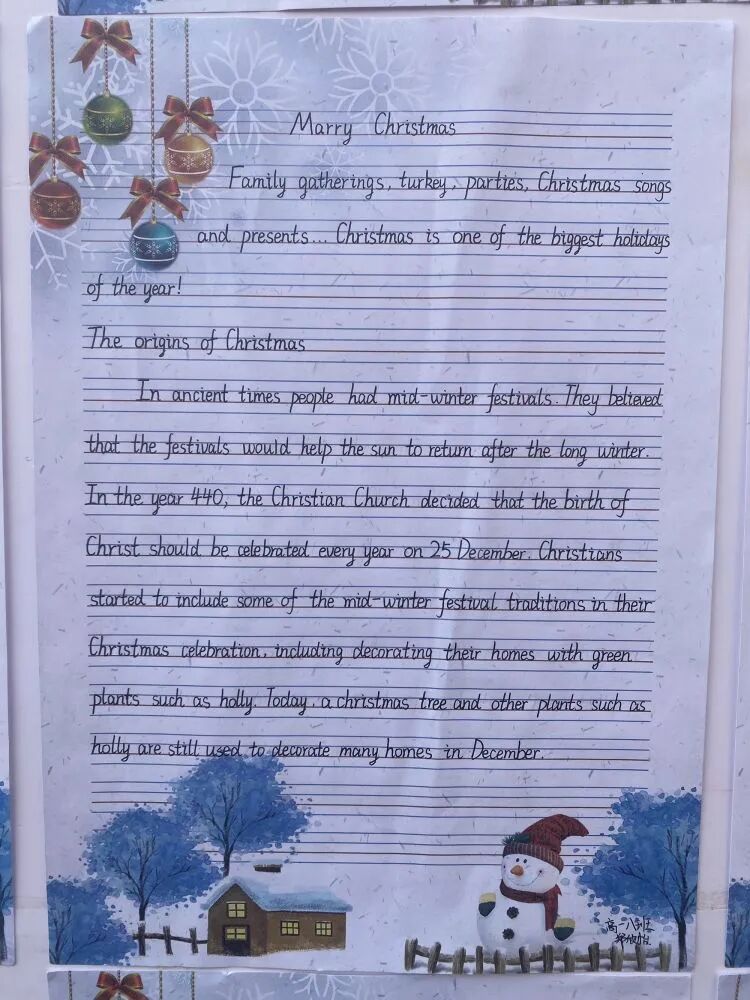 Marry Christmas
Family gatherings, turkey, parties, Christmas songs
and presents... Christmas is one of the biggest holidays
of the year!
The origins of Christmas
In ancient times people had mid-winter festivals. They believed
that the festivals would help the sun to return after the long winter.
In the year 440, the Christian Church decided that the birth of
Christ should be celebrated every year on 25 December. Christians
started to include some of the mid-winter festival traditions in their
Christmas celebration, including decorating their homes with green
plants such as holly. Today, a christmas tree and other plants such as
holly are still used to decorate many homes in December.
高一八班